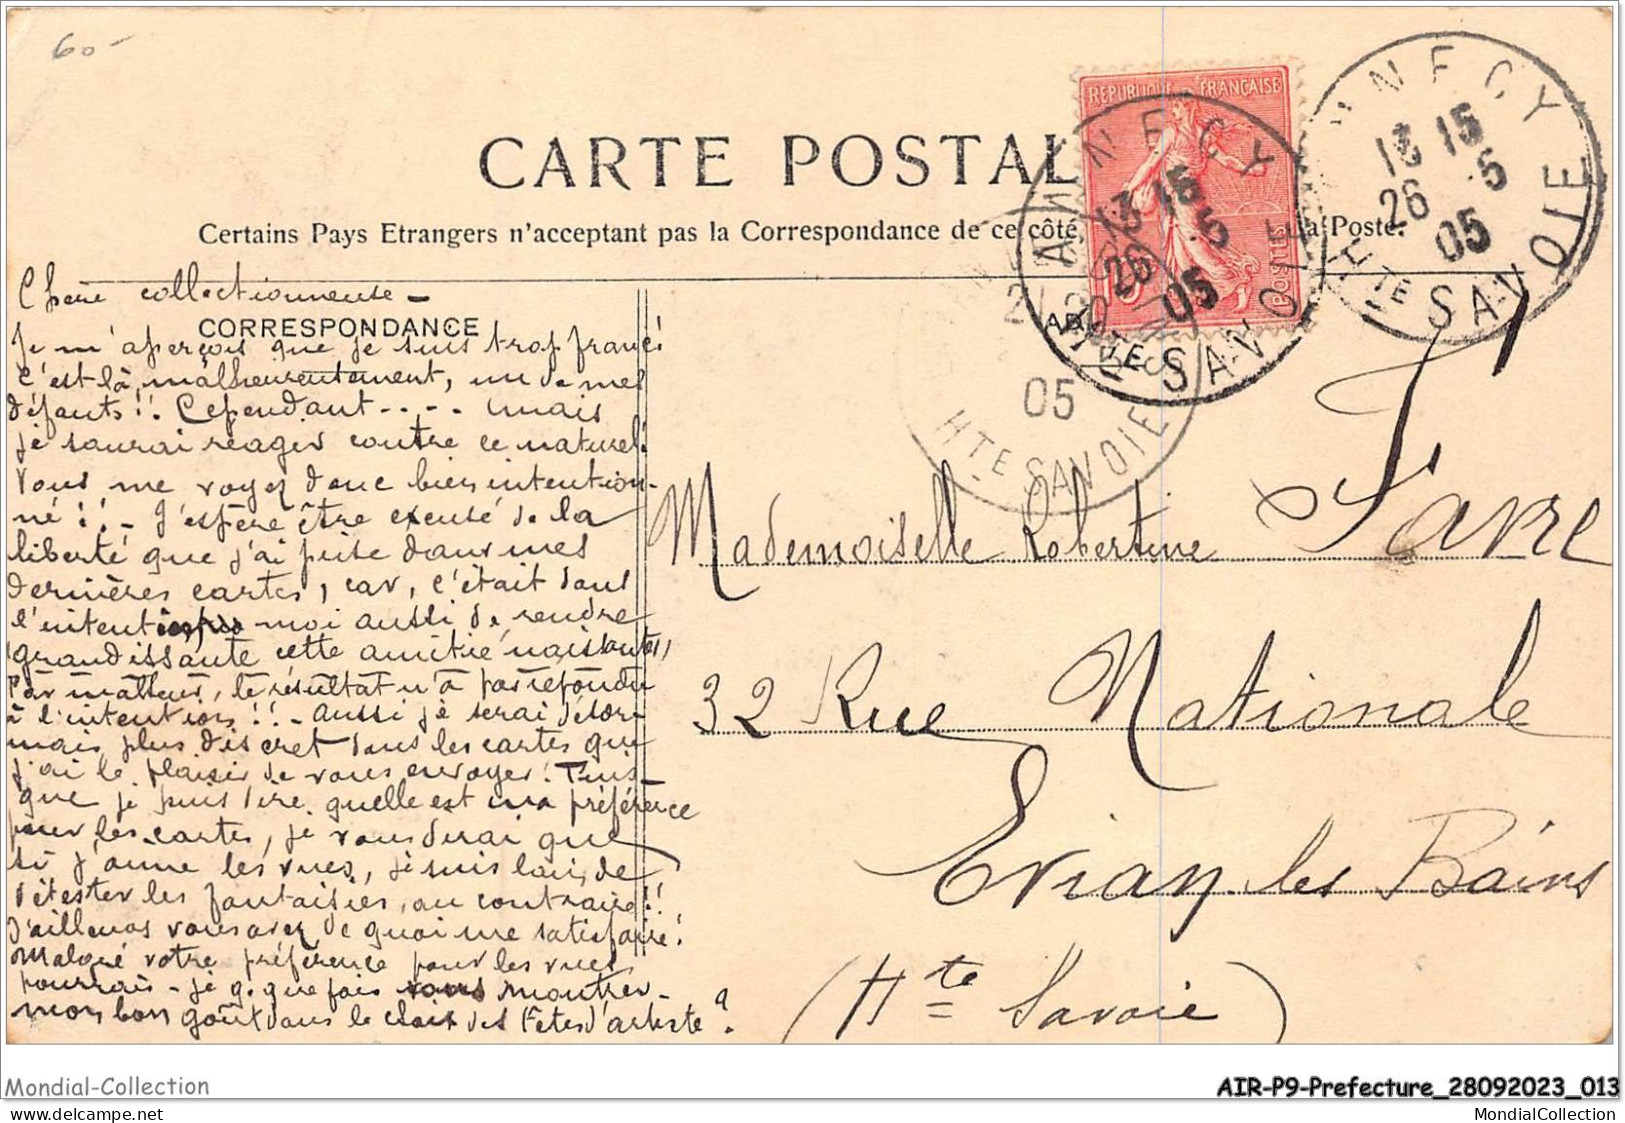 60-
CARTE POSTALE
Certains Pays Etrangers n'acceptant pas la Correspondance de ce côté, la Poste.
REPUBLIQUE FRANÇAISE
POSTES
10
ANNECY
13 15
26 .5
05
HTE SAVOIE
ANNECY
13 15
26 .5
05
HTE SAVOIE
05
HTE SAVOIE
CORRESPONDANCE
Chère collectionneuse -
Je m'aperçois que je suis trop franc!
C'est là, malheureusement, un de mes
défauts!!. Cependant - - - - mais
je saurai réagir contre ce naturel.
Vous me voyez donc bien intention-
né!! - J'espère être excusé de la
liberté que j'ai prise dans mes
dernières cartes, car, c'était dans
l'intention moi aussi de rendre
grandissante cette amitié naissante,
Par malheur, le résultat n'a pas répondu
à l'intention!! - Aussi je serai désor-
mais plus discret dans les cartes que
j'ai le plaisir de vous envoyer! Puis-
que je puis dire quelle est ma préférence
pour les cartes, je vous dirai que
si j'aime les vues, je suis loin de
détester les fantaisies, au contraire!!
D'ailleurs vous avez de quoi me satisfaire!
Malgré votre préférence pour les vues,
pourrais-je q. que fois vous montrer
mon bon goût dans le choix des Têtes d'artiste?
Mademoiselle Robertine Favre
32 Rue Nationale
Evian les Bains
(Hte Savoie)
Mondial-Collection
AIR-P9-Prefecture_28092023_013
MondialCollection